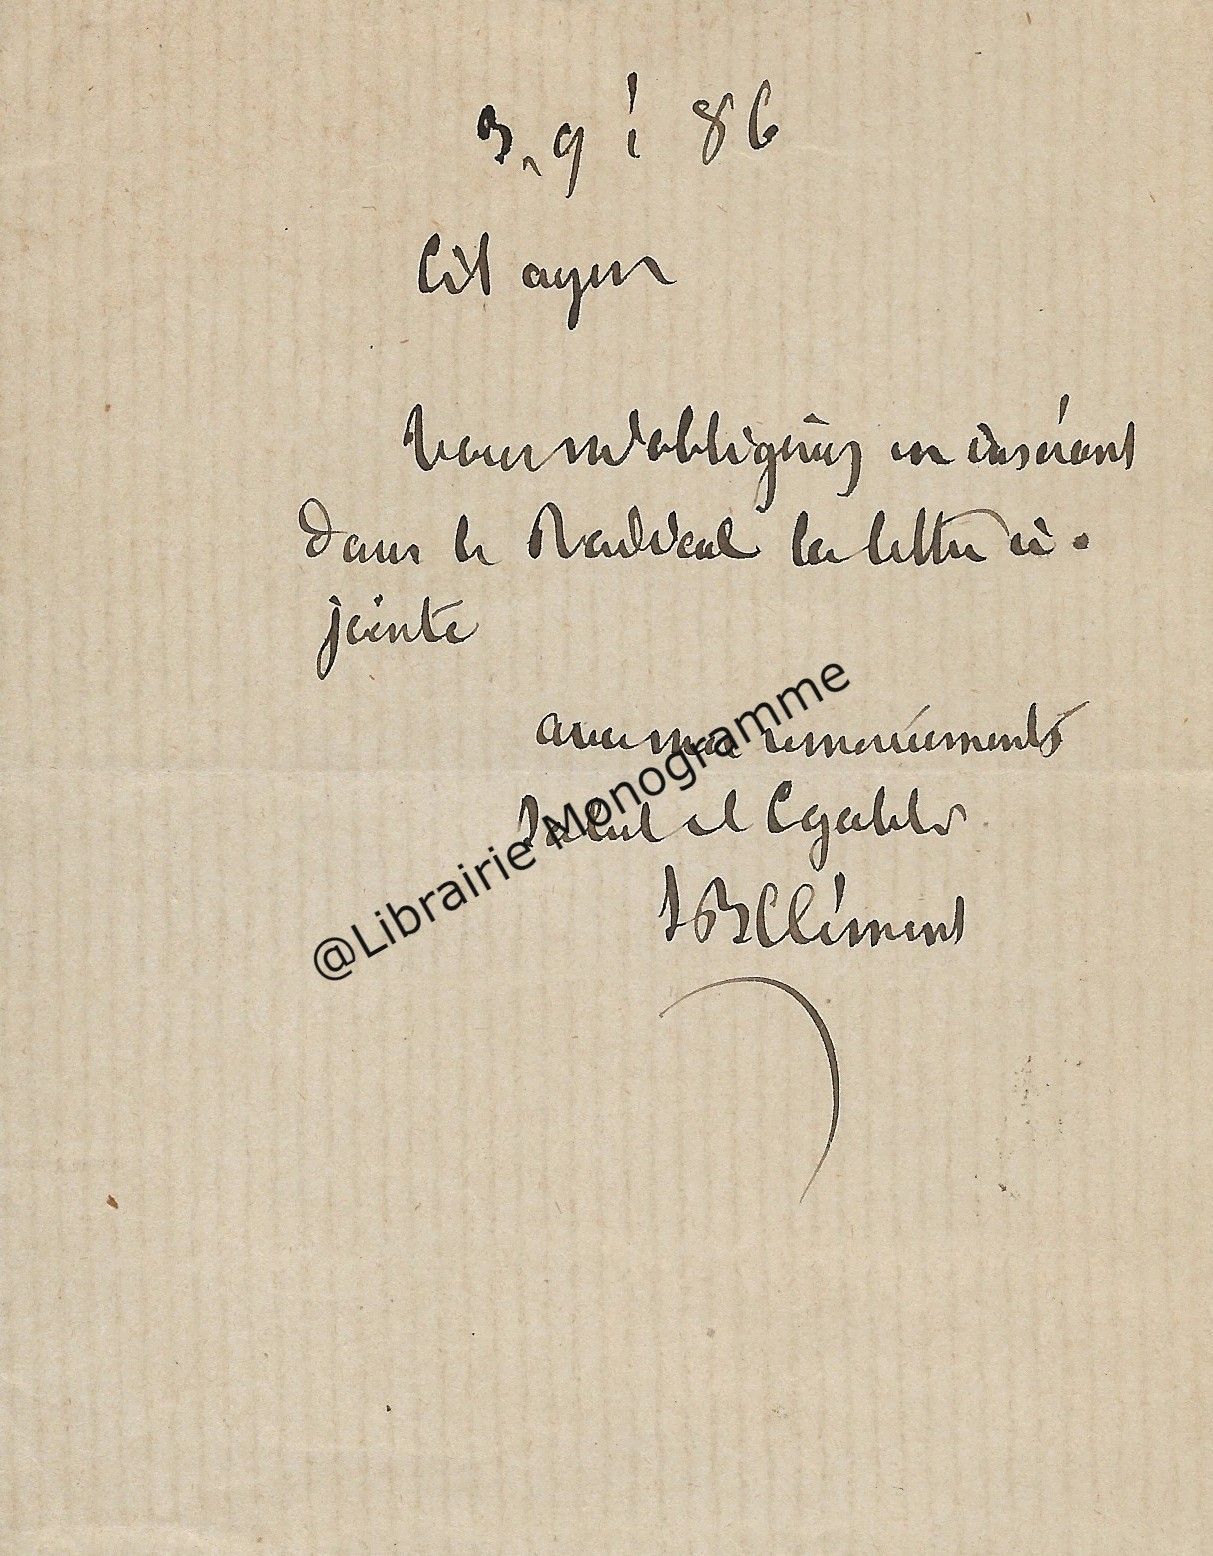 3, 9 i 86
Citoyen
Vous m'obligeriez en insérant
dans le Radical la lettre ci-
jointe
avec mes remerciements
Salut et Egalité
JBClément
@Librairie Monogramme